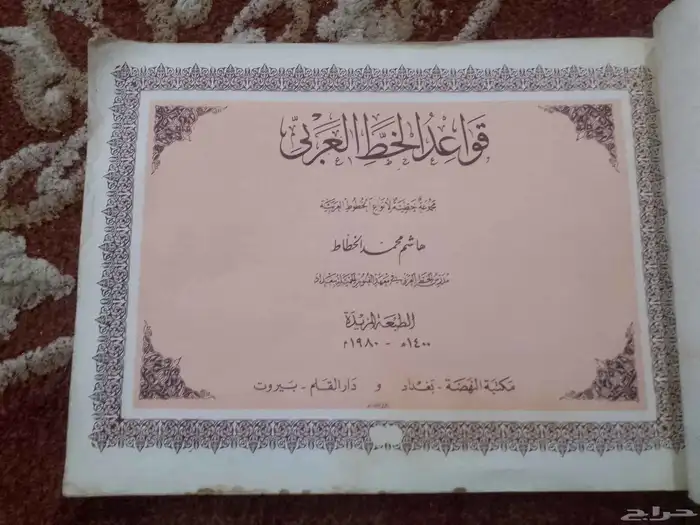 قواعد الخط العربي
مجموعة خطية لأنواع الخطوط العربية
هاشم محمد الخطاط
مدرس الخط العربي في معهد الفنون الجميلة ببغداد
الطبعة المزيدة
١٤٠٠هـ - ١٩٨٠م
مكتبة النهضة - بغداد و دار القلم - بيروت
حراج